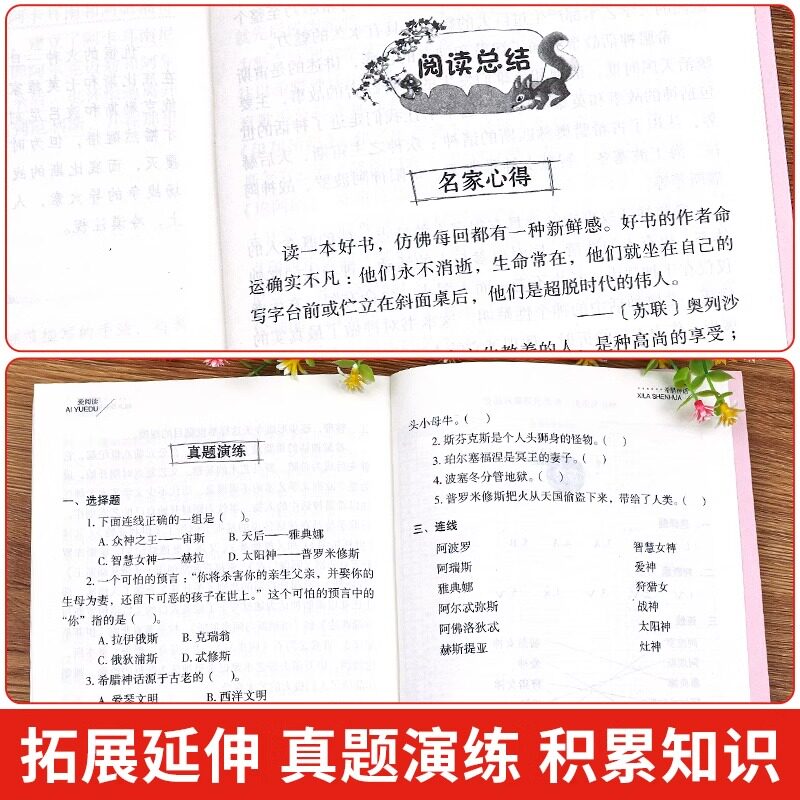 阅读总结
名家心得
读一本好书，仿佛每回都有一种新鲜感。好书的作者命
运确实不凡：他们永不消逝，生命常在，他们就坐在自己的
写字台前或伫立在斜面桌后，他们是超脱时代的伟人。
——〔苏联〕奥列沙
教养的人，是种高尚的享受；
爱阅读
AI YUEDU
真题演练
一、选择题
1. 下面连线正确的一组是（ ）。
A. 众神之王——宙斯 B. 天后——雅典娜
C. 智慧女神——赫拉 D. 太阳神——普罗米修斯
2. 一个可怕的预言：“你将杀害你的亲生父亲，并娶你的
生母为妻，还留下可恶的孩子在世上。”这个可怕的预言中的
“你”指的是（ ）。
A. 拉伊俄斯 B. 克瑞翁
C. 俄狄浦斯 D. 忒修斯
3. 希腊神话源于古老的（ ）。
A. 爱琴文明 B. 西洋文明
希腊神话
XILA SHENHUA
头小母牛。（ ）
2. 斯芬克斯是个人头狮身的怪物。（ ）
3. 珀尔塞福涅是冥王的妻子。（ ）
4. 波塞冬分管地狱。（ ）
5. 普罗米修斯把火从天国偷盗下来，带给了人类。（ ）
三、连线
阿波罗 智慧女神
阿瑞斯 爱神
雅典娜 狩猎女
阿尔忒弥斯 战神
阿佛洛狄忒 太阳神
赫斯提亚 灶神
拓展延伸 真题演练 积累知识